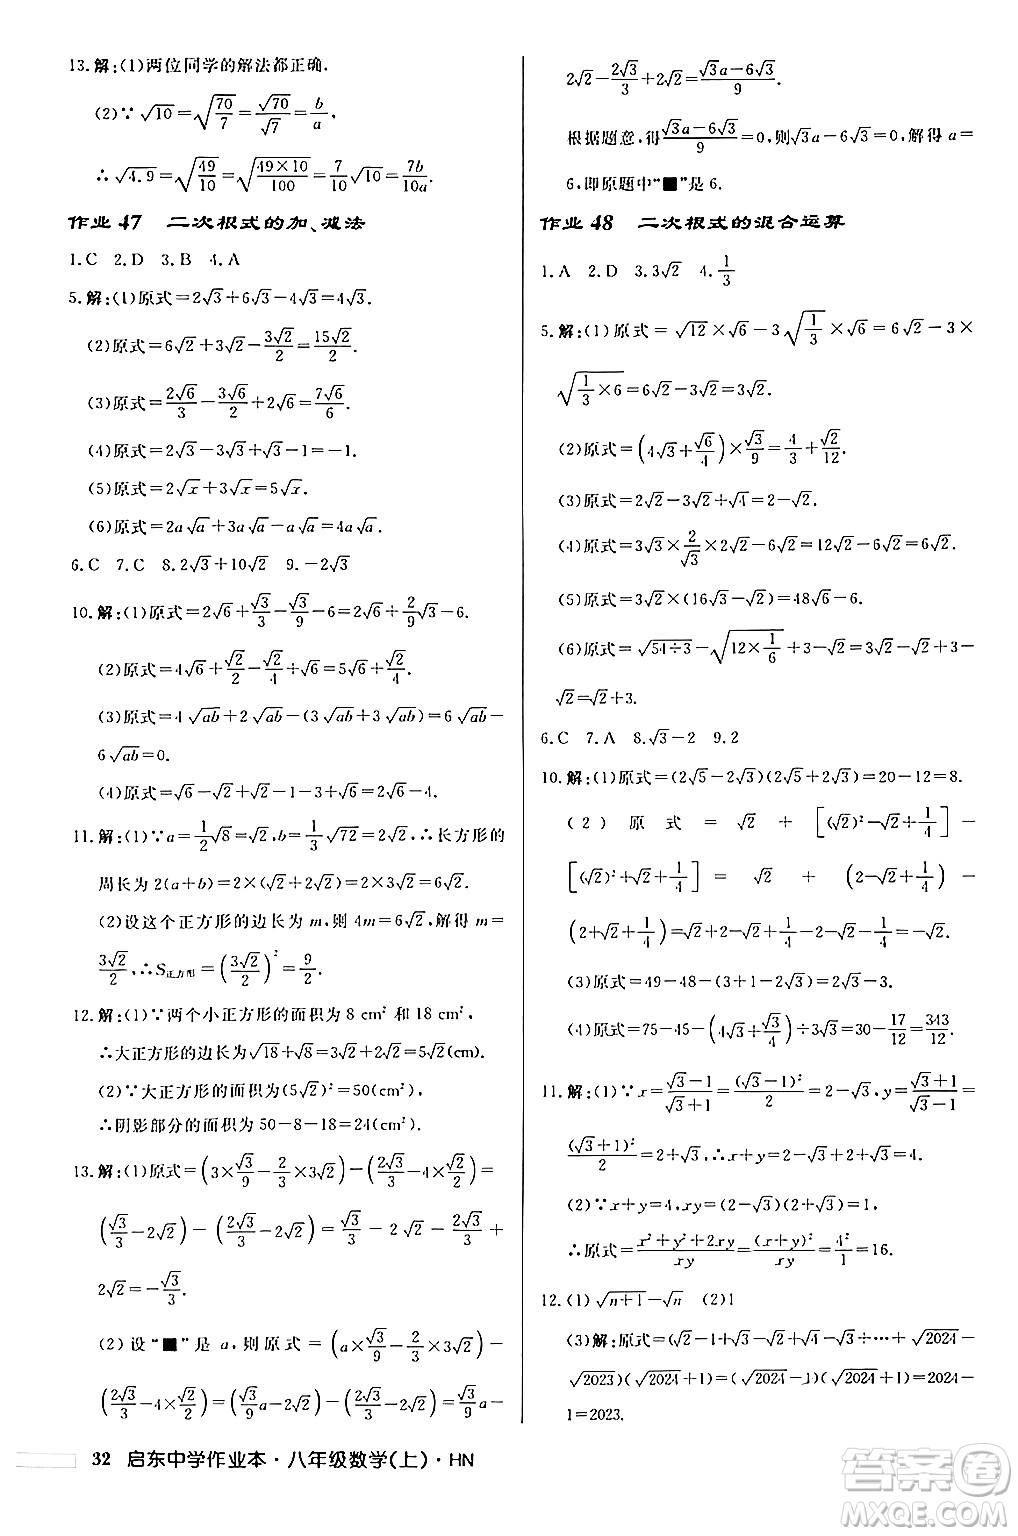 13.解:(1)两位同学的解法都正确.
(2)∵√10=√(70/7)=√70/√7=b/a,
∴√4.9=√(49/10)=√(49×10/100)=7/10√10=7b/10a.
作业 47 二次根式的加、减法
1.C 2.D 3.B 4.A
5.解:(1)原式=2√3+6√3-4√3=4√3.
(2)原式=6√2+3√2-3√2/2=15√2/2.
(3)原式=2√6/3-3√6/2+2√6=7√6/6.
(4)原式=2√3-3√3+√3-1=-1.
(5)原式=2√x+3√x=5√x.
(6)原式=2a√a+3a√a-a√a=4a√a.
6.C 7.C 8.2√3+10√2 9.-2√3
10.解:(1)原式=2√6+√3/3-√3/9-6=2√6+2/9√3-6.
(2)原式=4√6+√2/2-√2/4+√6=5√6+√2/4.
(3)原式=4√ab+2√ab-(3√ab+3√ab)=6√ab-
6√ab=0.
(4)原式=√6-√2+√2-1-3=√6-4.
11.解:(1)∵a=1/2√8=√2,b=1/3√72=2√2,∴长方形的
周长为2(a+b)=2×(√2+2√2)=6√2.
(2)设这个正方形的边长为m,则4m=6√2,解得m=
3√2/2,∴S正方形=(3√2/2)²=9/2.
12.解:(1)∵两个小正方形的面积为8 cm²和18 cm²,
∴大正方形的边长为√18+√8=3√2+2√2=5√2(cm).
(2)∵大正方形的面积为(5√2)²=50(cm²),
∴阴影部分的面积为50-8-18=24(cm²).
13.解:(1)原式=(3×√3/9-2/3×3√2)-(2√3/3-4×√2/2)=
(√3/3-2√2)-(2√3/3-2√2)=√3/3-2√2-2√3/3+
2√2=-√3/3.
(2)设“■”是a,则原式=(a×√3/9-2/3×3√2)-
(2√3/3-4×√2/2)=√3/9a-2√2-(2√3/3-2√2)=√3/9a-
2√2-2√3/3+2√2=(√3a-6√3)/9.
根据题意,得(√3a-6√3)/9=0,则√3a-6√3=0,解得a=
6,即原题中“■”是6.
作业 48 二次根式的混合运算
1.A 2.D 3.3√2 4.1/3
5.解:(1)原式=√12×√6-3√(1/3)×√6=6√2-3×
√(1/3×6)=6√2-3√2=3√2.
(2)原式=(4√3+√6/4)×√3/9=4/3+√2/12.
(3)原式=2√2-3√2+√2-2=-2.
(4)原式=3√3×2/√3×2√2-6√2=12√2-6√2=6√2.
(5)原式=3√2×(16√3-√2)=48√6-6.
(6)原式=√(54÷3)-√(12×1/6)+3=3√2-√2+3-
√2=√2+3.
6.C 7.A 8.√3-2 9.2
10.解:(1)原式=(2√5-2√3)(2√5+2√3)=20-12=8.
(2)原式=√2+[(√2)²-√2+1/4]-
[(√2)²+√2+1/4]=√2+(2-√2+1/4)-
(2+√2+1/4)=√2+2-√2+1/4-2-√2-1/4=-√2.
(3)原式=49-48-(3+1-2√3)=2√3-3.
(4)原式=75-45-(4√3+√3/4)÷3√3=30-17/12=343/12.
11.解:(1)∵x=(√3-1)/(√3+1)=(√3-1)²/2=2-√3,y=(√3+1)/(√3-1)=
(√3+1)²/2=2+√3,∴x+y=2-√3+2+√3=4.
(2)∵x+y=4,xy=(2-√3)(2+√3)=1,
∴原式=(x²+y²+2xy)/xy=(x+y)²/xy=4²/1=16.
12.(1)√(n+1)-√n (2)1
(3)解:原式=(√2-1+√3-√2+…+√2024-
√2023)(√2024+1)=(√2024-1)(√2024+1)=2024-
1=2023.
32 启东中学作业本·八年级数学(上)·HN
答案圈
MXQE.COM